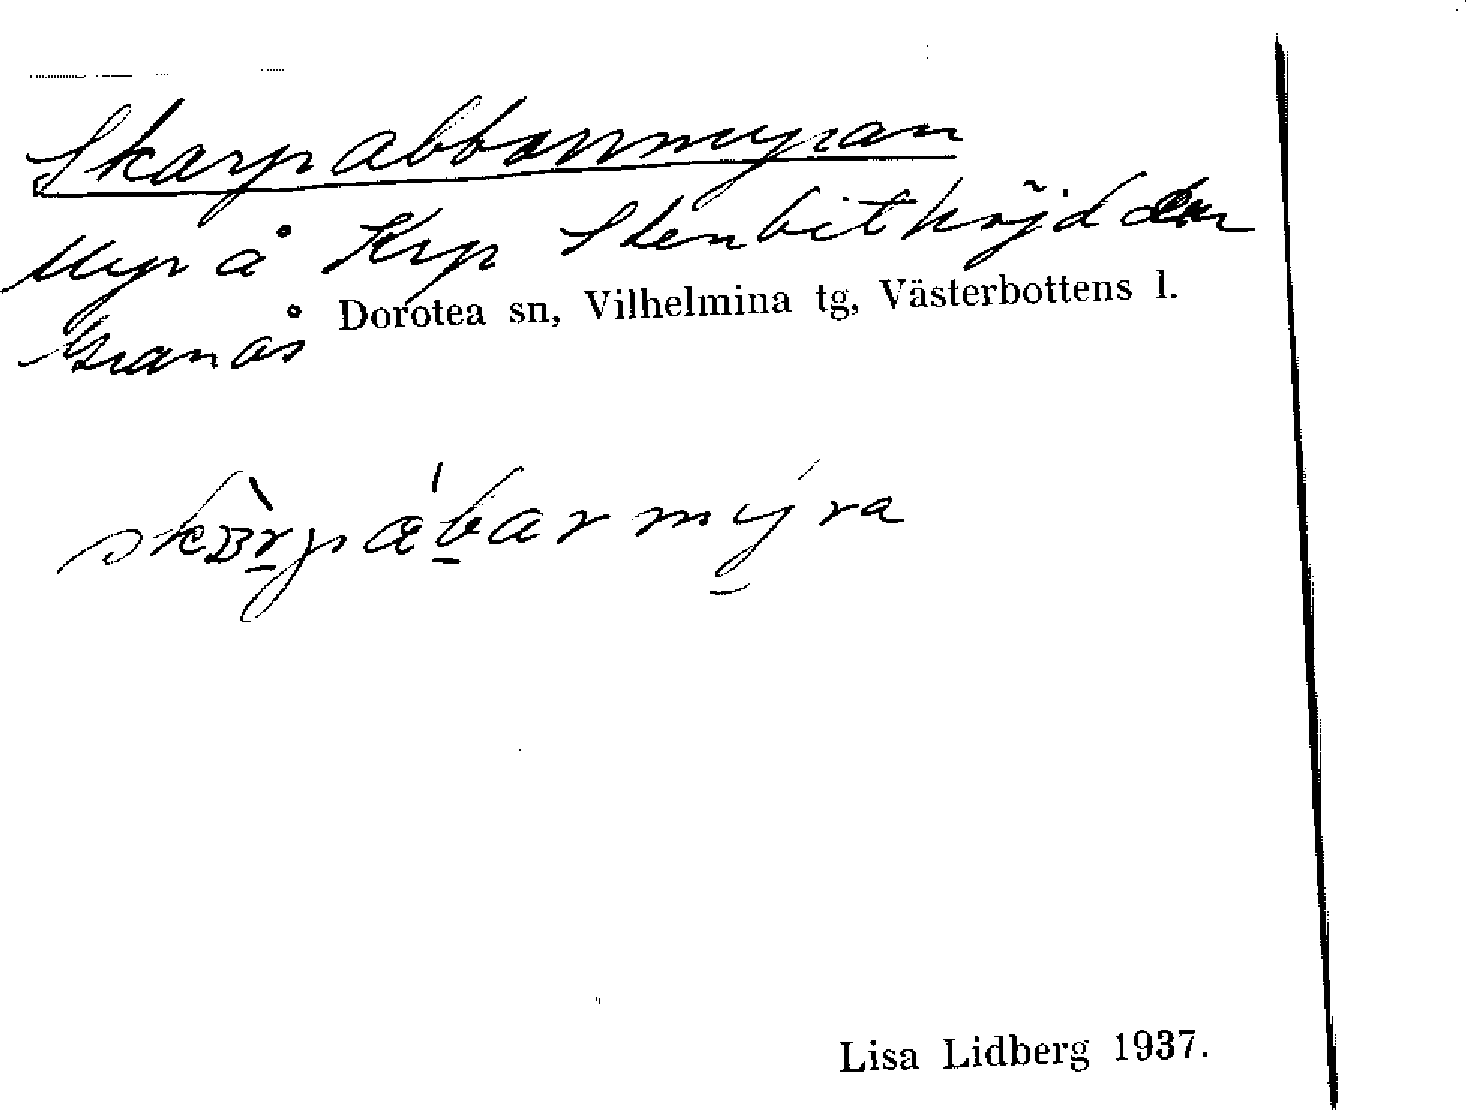 Skarpabborrmyran
Myr å Krp Stenbithöjden
Granås
Dorotea sn, Vilhelmina tg, Västerbottens l.
Lisa Lidberg 1937.